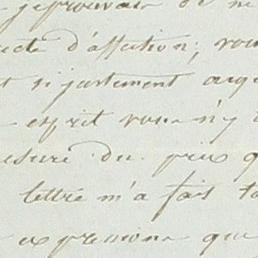 jeprouvais de ne
d'affection; vou
si justement acqu
esprit vous n'y
esure du prix q
lettré m'a fait to
expressions que